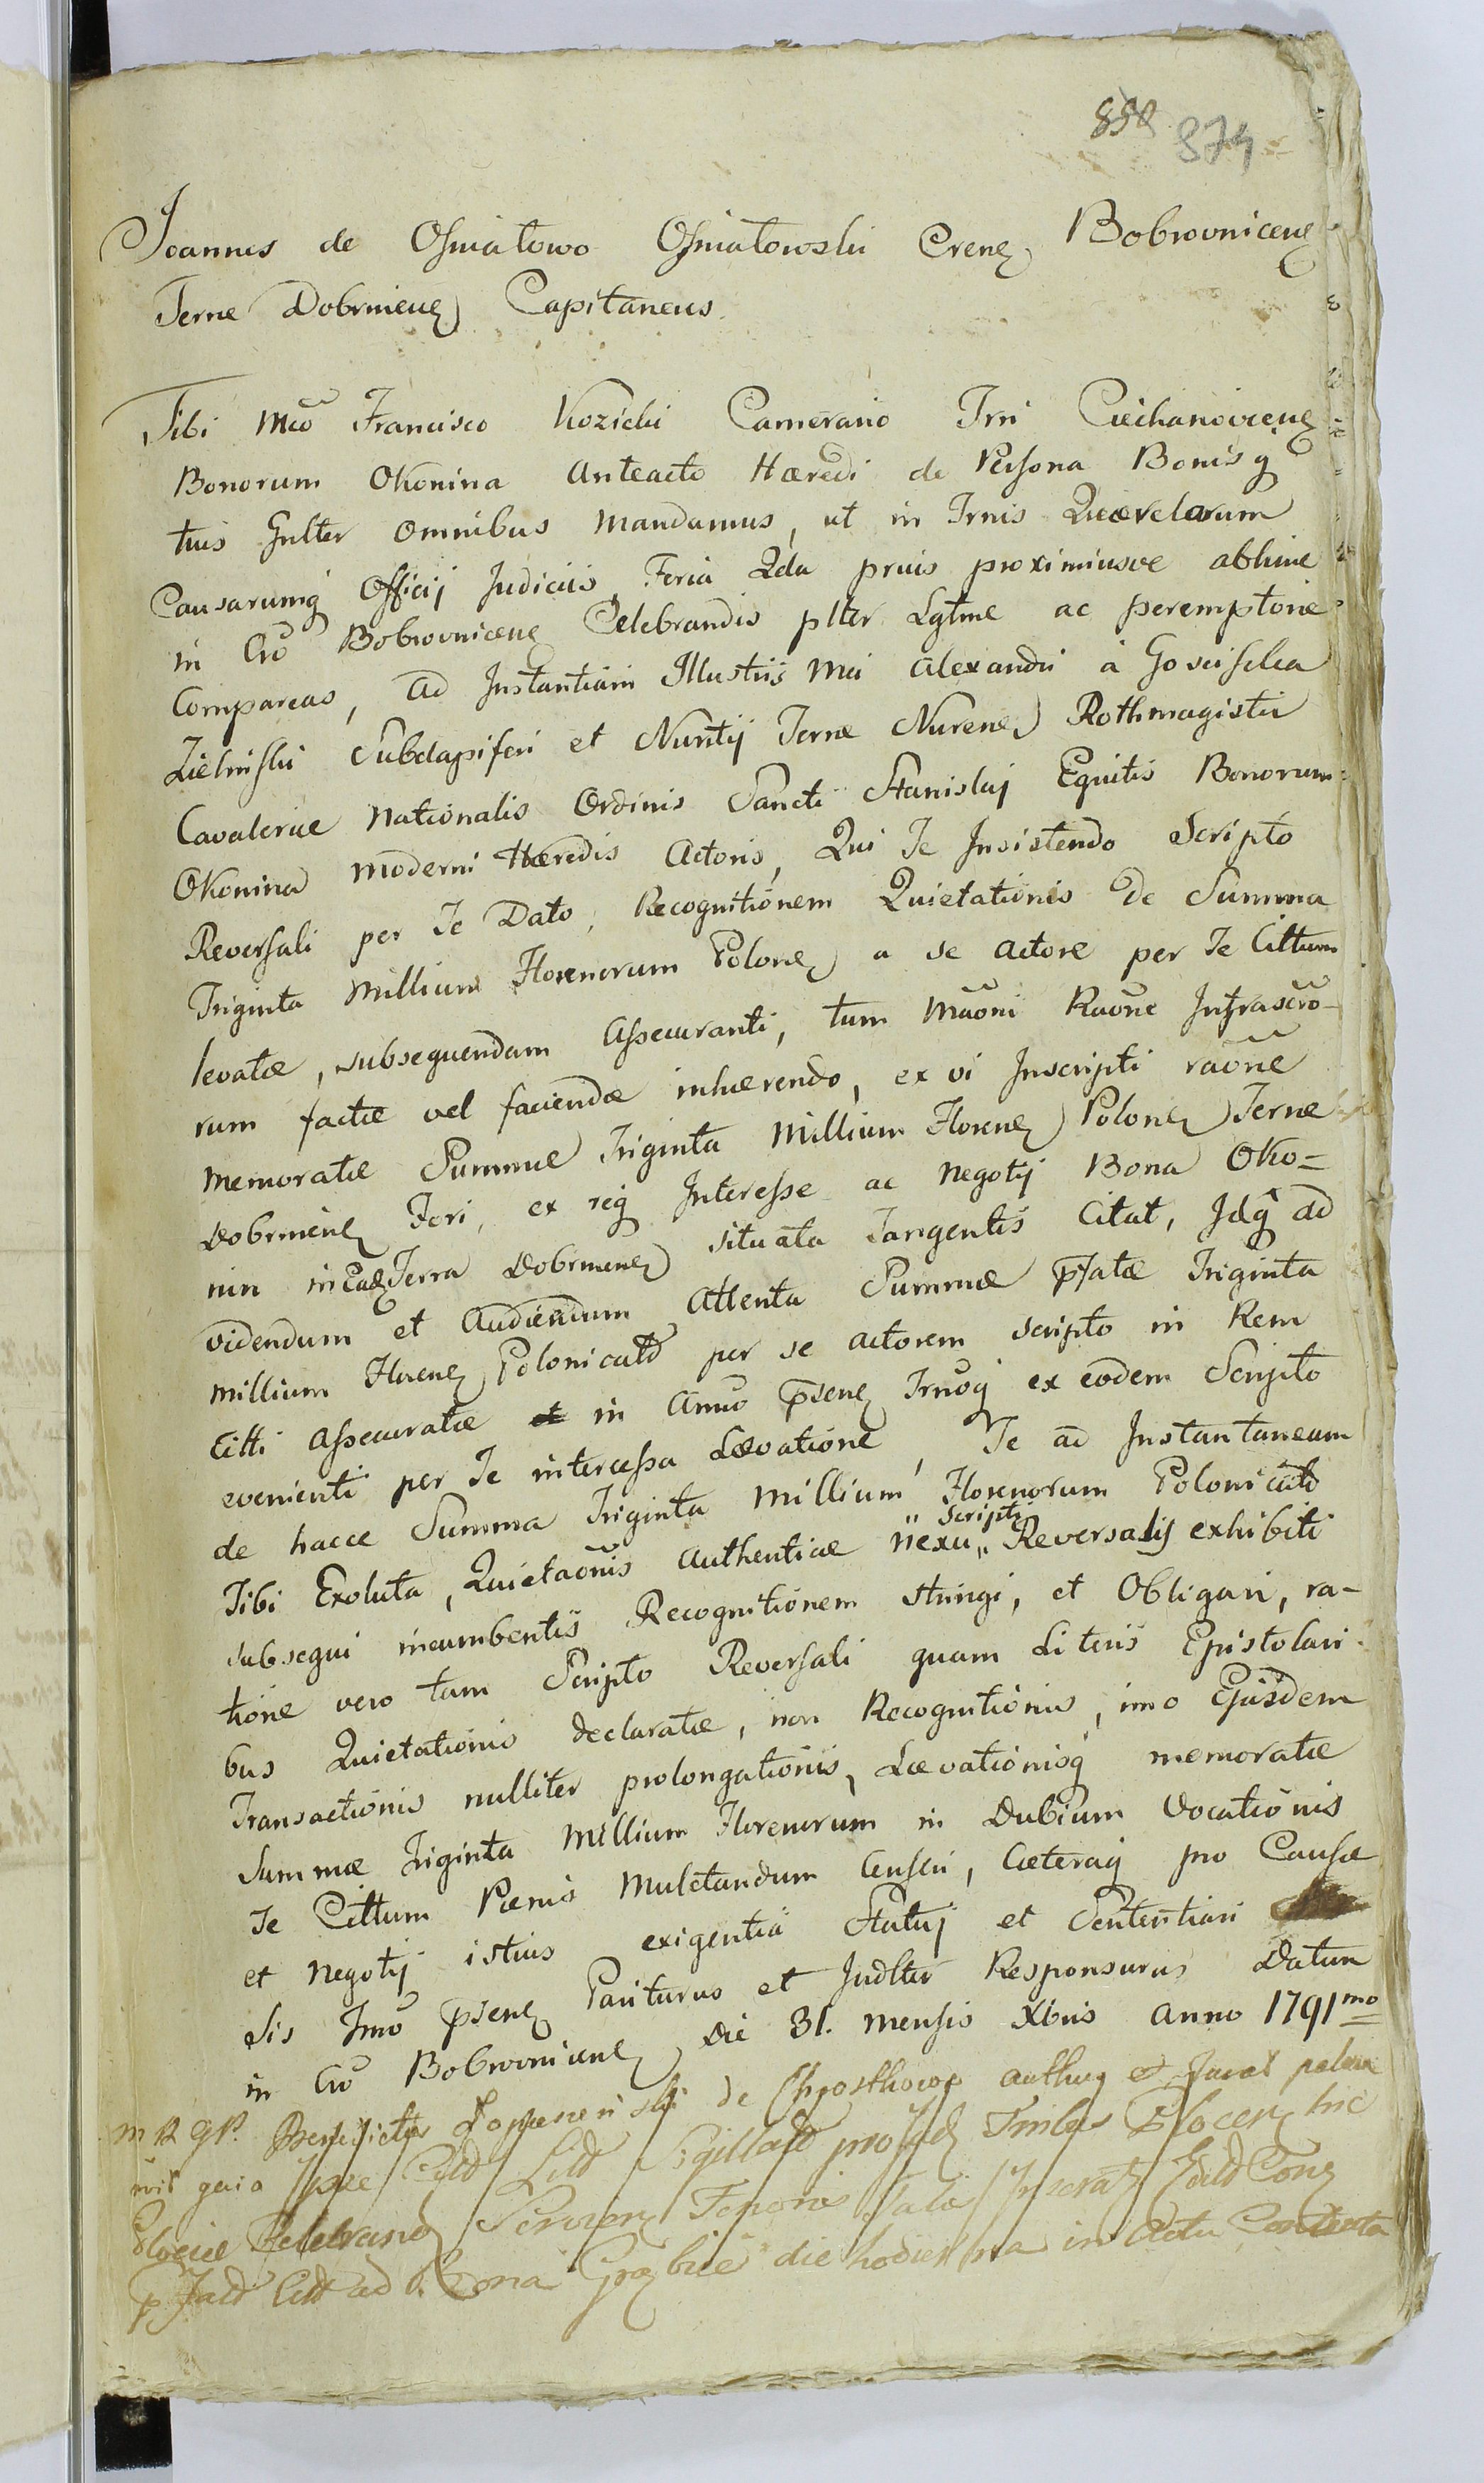 850 874
Joannes de Osmiatowo Osmiatowski Crenẽ Bobrovnicenẽ
Terræ Dobrinienẽ Capitaneus
Tibi Mco Francisco Kozicki Camerario Trri Ciechanovienẽ
Bonorum Okonina Anteacto Hæredi de Persona Bonisq
tuis Gnlter omnibus Mandamus, ut in Trnis Quærelarum
Causarumq Officij Judiciis, Feria 2da pruis proximiusve abhinc
in Cro Bobrovnicenẽ Celebrandis plter Lgtme ac peremptorie
Compareas, ad Instantiam Illustris Mci Alexandri à Gosciska
Zielinski Subdapiferi et Nuntij Terræ Nurenẽ Rothmagistri
Cavaleriæ Nationalis Ordinis Sancti Stanislaj Equitis Bonorum
Okonina moderni Hæredis Actoris, Qui Te Insistendo Scripto
Reversali per Te Dato, Recognitionem Quietationis de Summa
Triginta Millium Florenorum Polonẽ a se actore per Te Cittum
levatæ, subsequendam Assecuranti, tum Mãoni Raõne Infrascro-
rum factæ vel faciendæ inhærendo, ex vi Inscripti raõne
memoratæ Summæ Triginta Millium Florenẽ Polonẽ Terræ
Dobrinenẽ Fori, ex req Interesse ac negotij Bona Oko=
nin in Eadẽ Terra Dobrinenẽ situata Tangentis Citat, Idq ad
videndum et Audiendum Attenta Summæ pfatæ Triginta
millium Florenẽ Polonicald per se actorem scripto in Rem
Citti Assecuratæ et in Anno psenẽ Trnoq ex eodem Scripto
evenienti per Te intercessa Lævatione, Te ad Instantaneam
de hacce Summa Triginta Millium Florenorum Polonicald
Tibi Exoluta, Quietaõnis Authenticæ nexu " scripti " Reversalij exhibiti
subsequi incumbentis Recognitionem stringi, et Obligari, ra-
tione vero tam Scripto Reversali quam Literis Epistolari-
bus Quietationis declaratæ, non Recognitionis, imo Ejusdem
Transactionis nulliter prolongationis, Lævationisq memoratæ
Summæ Triginta Millium Florenorum in Dubium Vocationis
Te Cittum Pænis Mulctandum Censeri, Cæteraq pro Causæ
et negotij istius exigentia Statuj et Sententiari
Sis Tmo psenẽ Pariturus et Judlter Responsurus Datum
in Cro Bobrovnicenẽ Die 31. Mensis Xbris Anno 1791mo
m R GP. Benedictus de Chrosthowo et
Sigillald
Celebrand Tenoris
ad Bona die hodierna in Actu Contenta